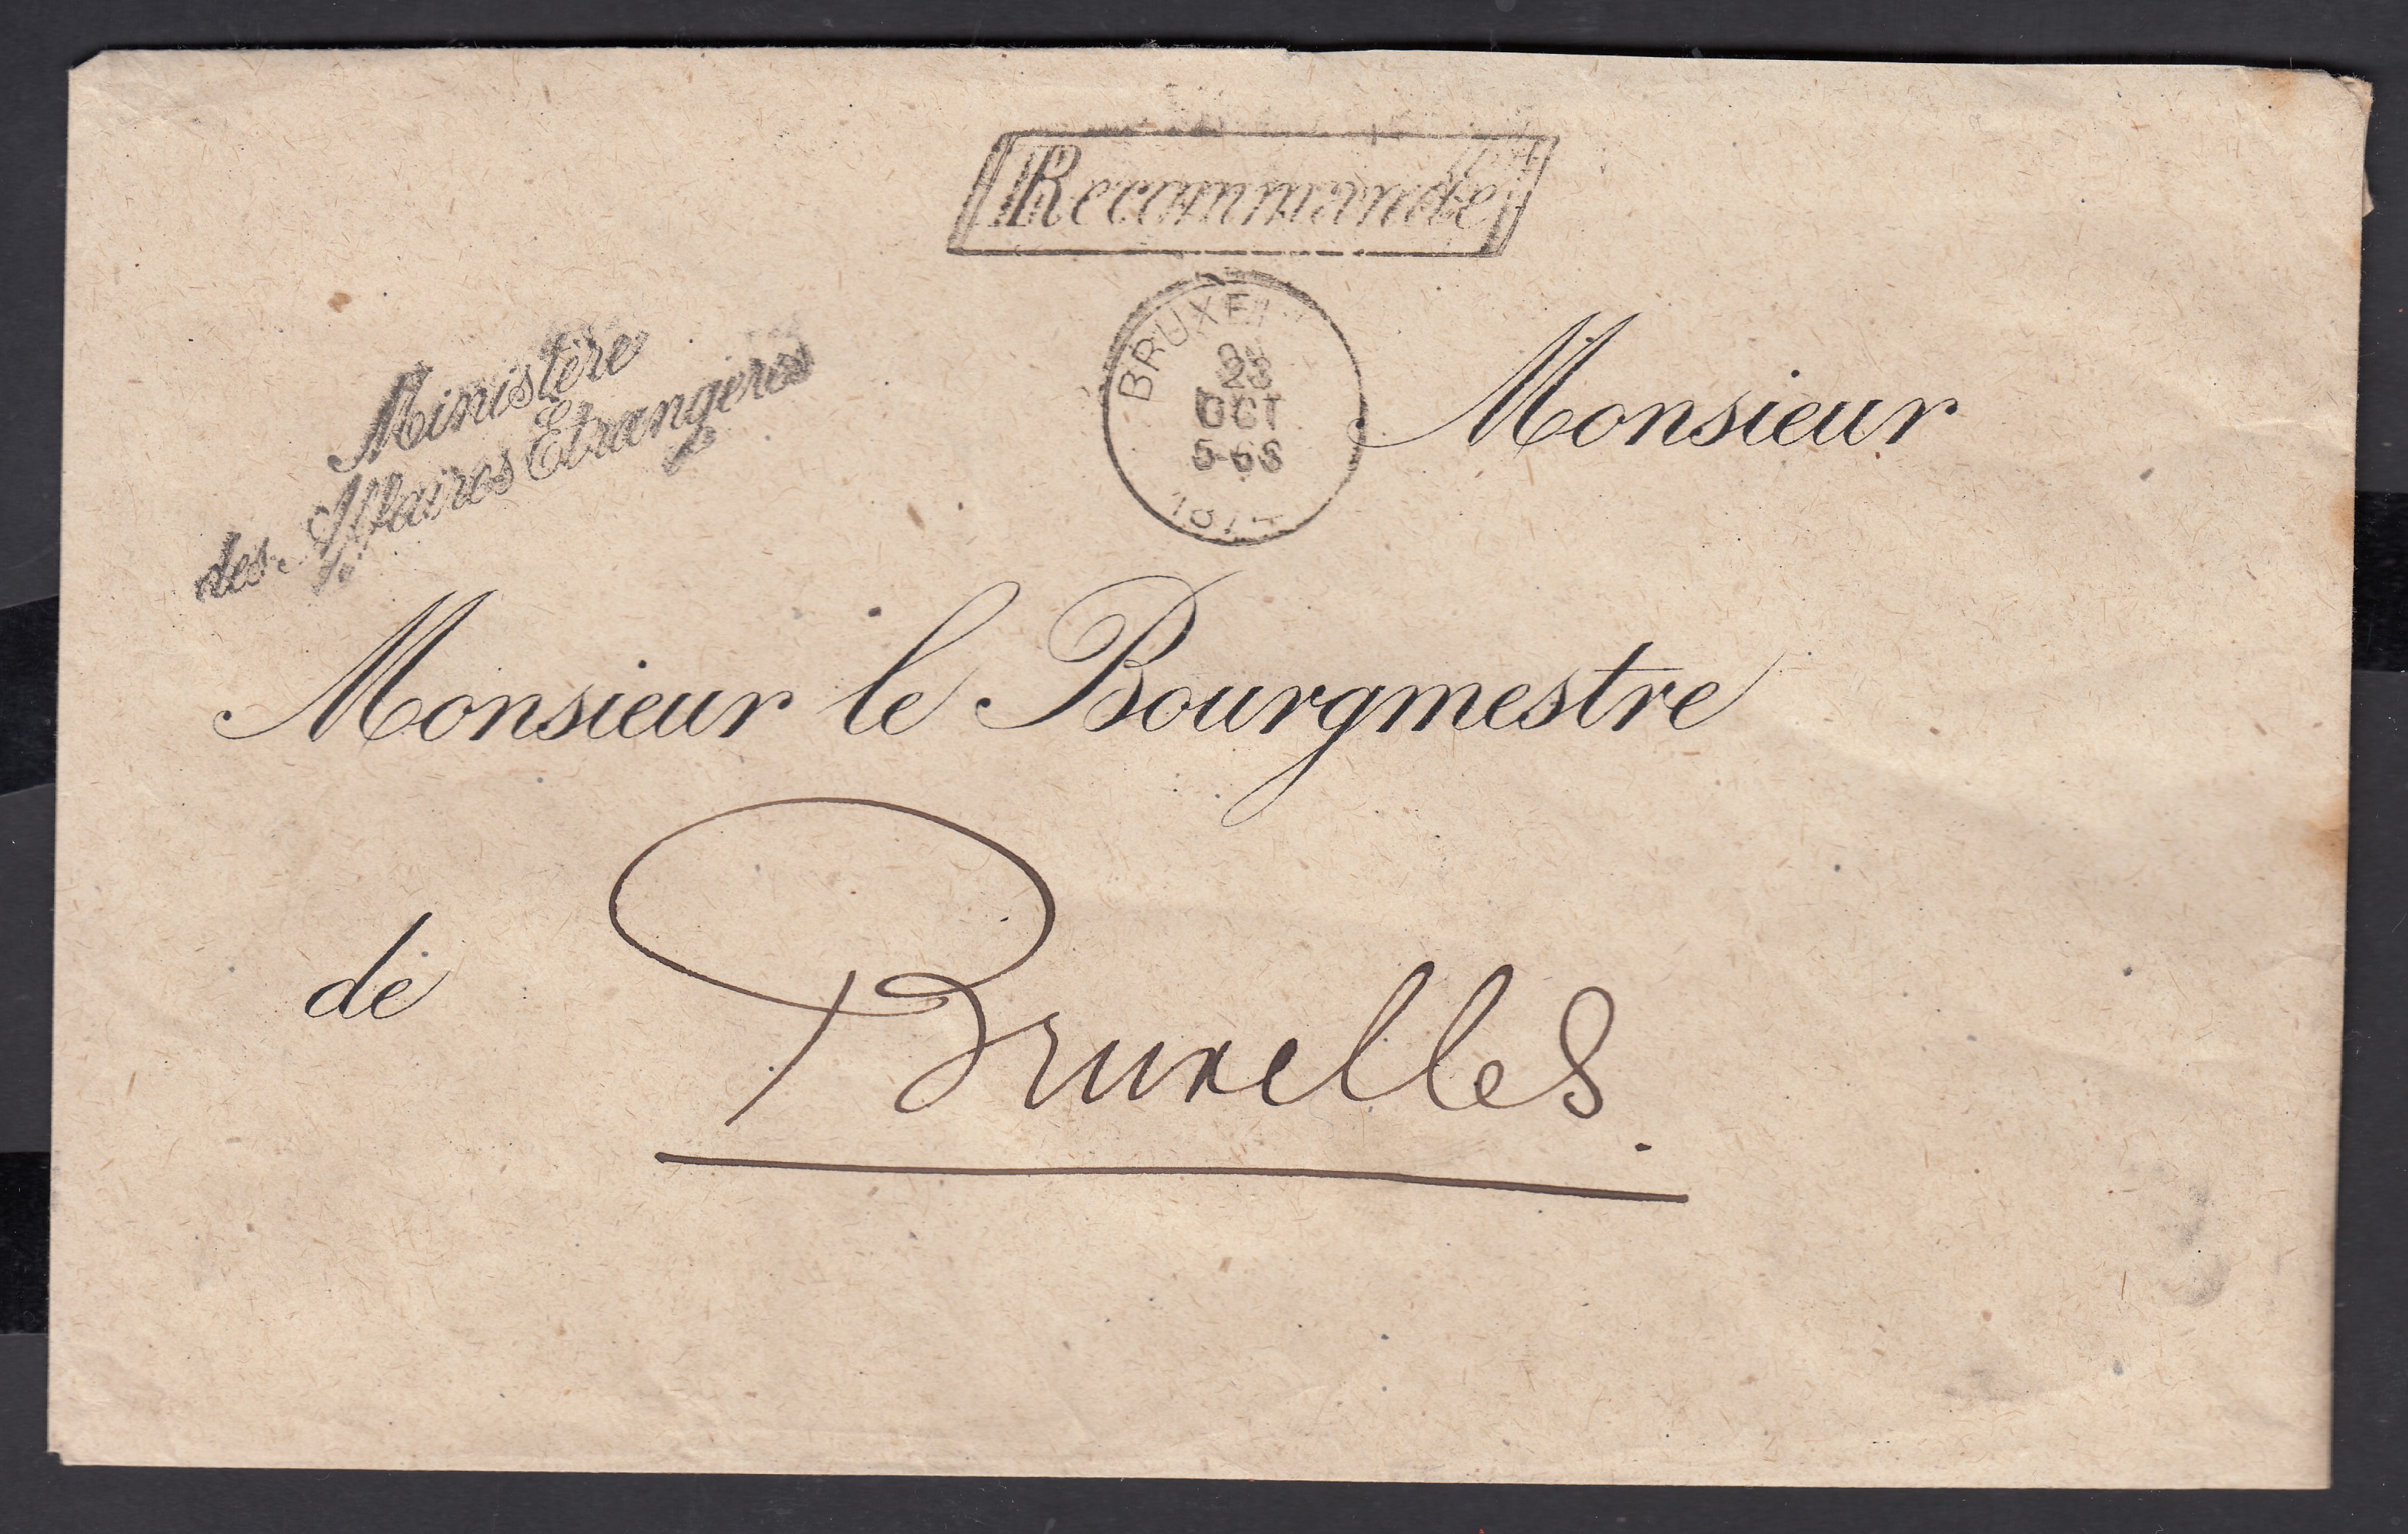 Recommandé
Ministère
des Affaires Etrangères
BRUXEL
23
OCT
5-6S
1874
Monsieur
Monsieur le Bourgmestre
de Bruxelles.